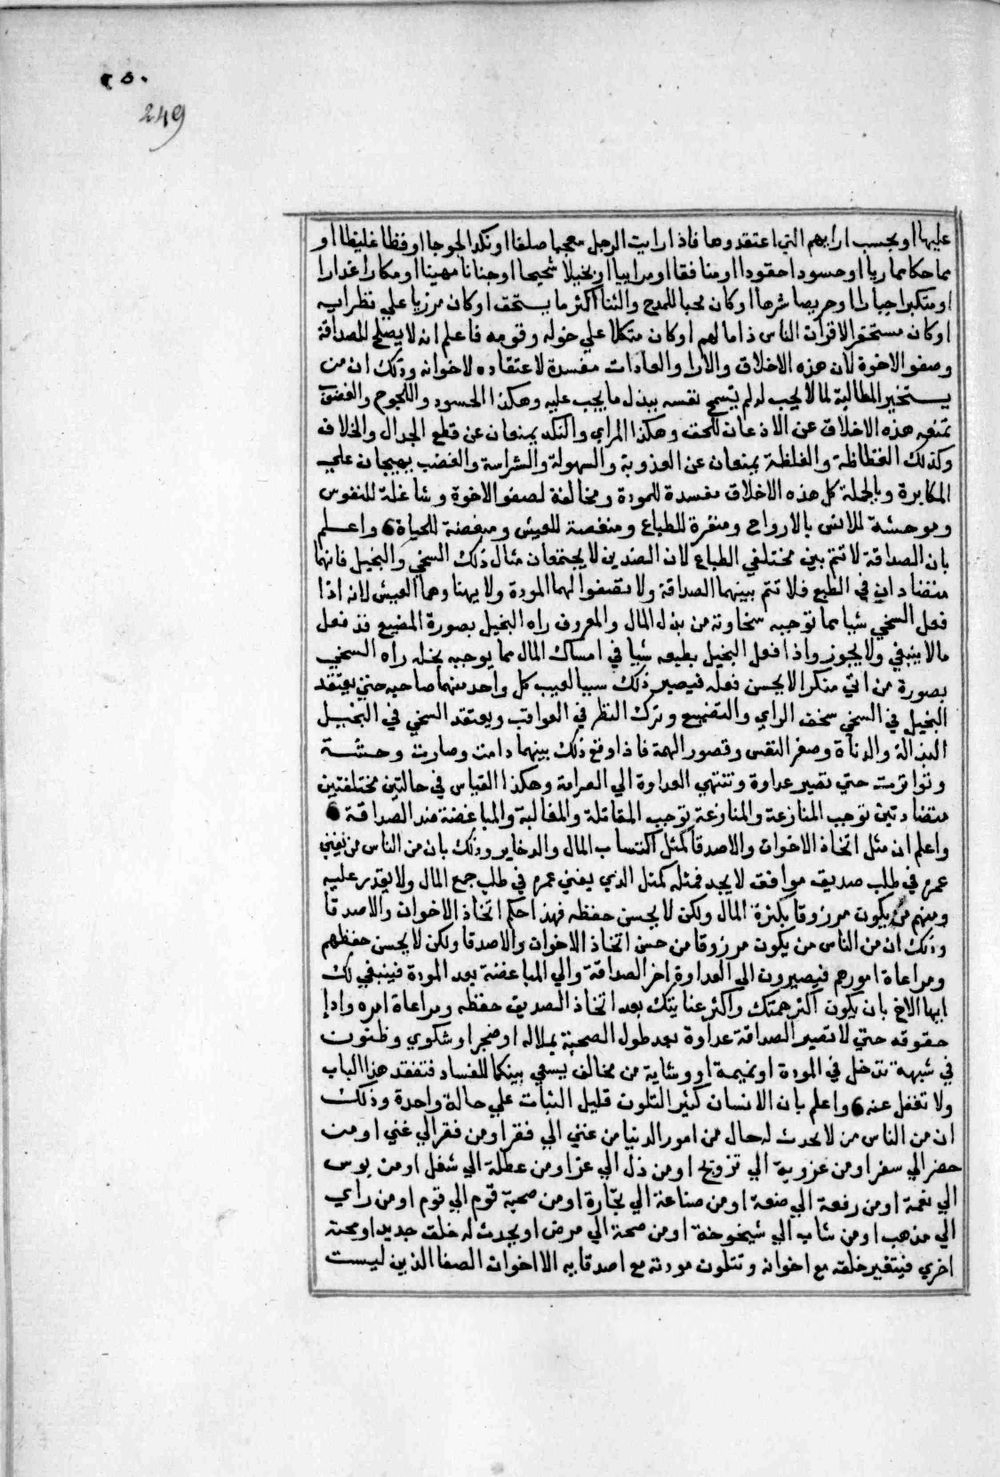 ٢٥٠
249
عليها او بحسب ارايهم التي اعتقدوها فاذا رايت الرجل معجبا صلفا او نكدا لجوجا او فظا غليظا او
مماحكا مماريا او حسودا حقودا او منافقا او مراييا او بخيلا شحيحا او جبانا مهينا او مكارا غدارا
او متكبرا جبارا او حريصا شرها او كان محبا للمدح والثنا اكثر مما يستحق او كان مزريا علي نظرايه
او كان مستحقرا لاقران الناس ذاما لهم او كان متكلا علي حوله وقوته فاعلم انه لا يصلح للصداقة
وصفو الاخوة لان هذه الاخلاق والارا والعادات مفسدة لاعتقاده لاخوانه وذلك ان من
يستخير المطالبة لما لا يجب له لم تسمح نفسه ببذل ما يجب عليه وهكذا الحسود واللجوج والغضوب
تمنعه هذه الاخلاق عن الاذعان للحق وهكذا المراي والنكد يمنعان عن قطع الجدال والخلاف
وكذلك الفظاظة والغلظة يمنعان عن العذوبة والسهولة والشراسة والغضب يهيجان علي
المكابرة وبالجملة كل هذه الاخلاق مفسدة للمودة ومخالفة لصفو الاخوة وشاغلة للنفوس
وموحشة للانس بالارواح ومنفرة للطباع ومنغصة للعيش ومبغضة للحياة واعلم
بان الصداقة لا تتم بين مختلفي الطباع لان الضدين لا يجتمعان مثال ذلك السخي والبخيل فانهما
متضادان في الطبع فلا تتم بينهما الصداقة ولا تصفوا لهما المودة ولا يهناوهما العيش لانه اذا
فعل السخي شيا مما توجبه سخاوته من بذل المال والمعروف راه البخيل بصورة المضيع قد فعل
مالا ينبغي ولا يجوز واذا فعل البخيل بطبعه شيا في امساك المال مما يوجبه بخله راه السخي
بصورة من اتي منكرا لا يحسن فعله فيصير ذلك سببا لعيب كل واحد منهما صاحبه حتي يعتقد
البخيل في السخي سخف الراي والتضييع وترك النظر في العواقب ويعتقد السخي في البخيل
النذالة والدناة وصغر النفس وقصور الهمة فاذا وقع ذلك بينهما دامت وصارت وحشة
وتواترت حتي تصير عداوة وتنتهي العداوة الي الصرامة وهكذا القياس في حالتين مختلفتين
متضادتين توجب المنازعة والمنازعة توجب المقاتلة والمغالبة والمباغضة ضد الصداقة
واعلم ان مثل اتخاذ الاخوان والاصدقا كمثل اكتساب المال والدخاير وذلك بان من الناس من يفني
عمره في طلب صديق موافق لا يجد فمثله كمثل الذي يفني عمره في طلب جمع المال ولا يقدر عليه
ومنهم من يكون مرزوقا بكثرة المال ولكن لا يحسن حفظه فهذا حكم اتخاذ الاخوان والاصدقا
وذلك ان من الناس من يكون مرزوقا من حسن اتخاذ الاخوان والاصدقا ولكن لا يحسن حفظهم
ومراعاة امورهم فيصيرون الي العداوة اخر الصداقة والي المباغضة بعد المودة فينبغي لك
ايها الاخ بان يكون اكثر همتك واكثر عنايتك بعد اتخاذ الصديق حفظه ومراعاة امره وادا
حقوقه حتي لا تصير الصداقة عداوة بعد طول الصحبة بملاله او ضجر او شكوي وظنون
في شبهة تدخل في المودة او نميمة او وشاية من مخالف يسعي بينكما للفساد فتفقد هذا الباب
ولا تغفل عنه واعلم بان الانسان كثير التلون قليل الثبات علي حالة واحدة وذلك
ان من الناس من لا يحدث له حال من امور الدنيا من غني الي فقر او من فقر الي غني او من
حضر الي سفر او من عزوبة الي تزويج او من ذل الي عز او من عطلة الي شغل او من بوس
الي نعمة او من رفعة الي ضعة او من صناعة الي تجارة او من صحبة قوم الي قوم او من راي
الي مذهب او من شاب الي شيخوخة او من صحة الي مرض او يحدث له خلق جديد او محنة
اخري فيتغير خلقه مع اخوانه وتتلون مودته مع اصدقايه الا اخوان الصفا الذين ليست